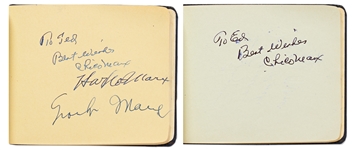 To Ted
Best Wishes
Chico Marx
Harpo Marx
Groucho Marx
To Ed
Best Wishes
Chico Marx